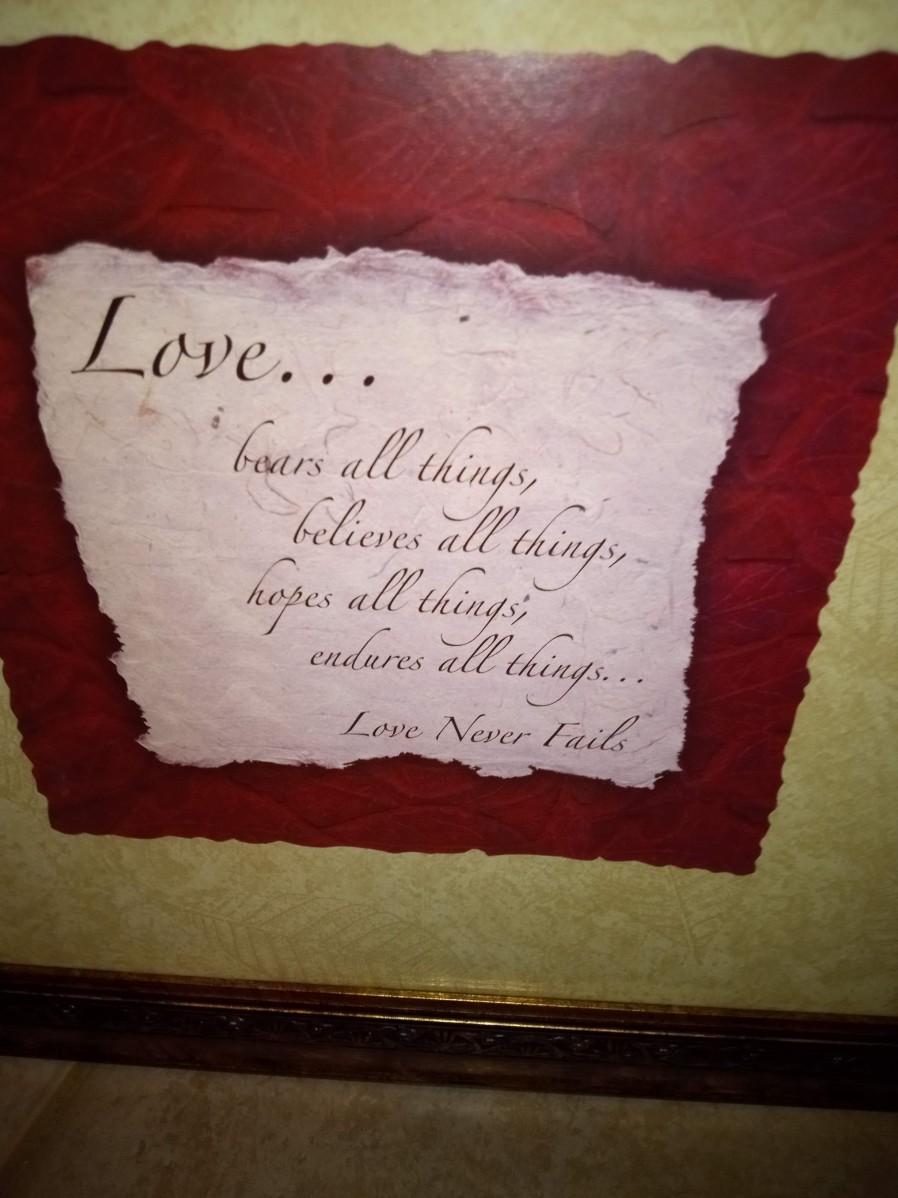 Love...
bears all things,
believes all things,
hopes all things,
endures all things...
Love Never Fails